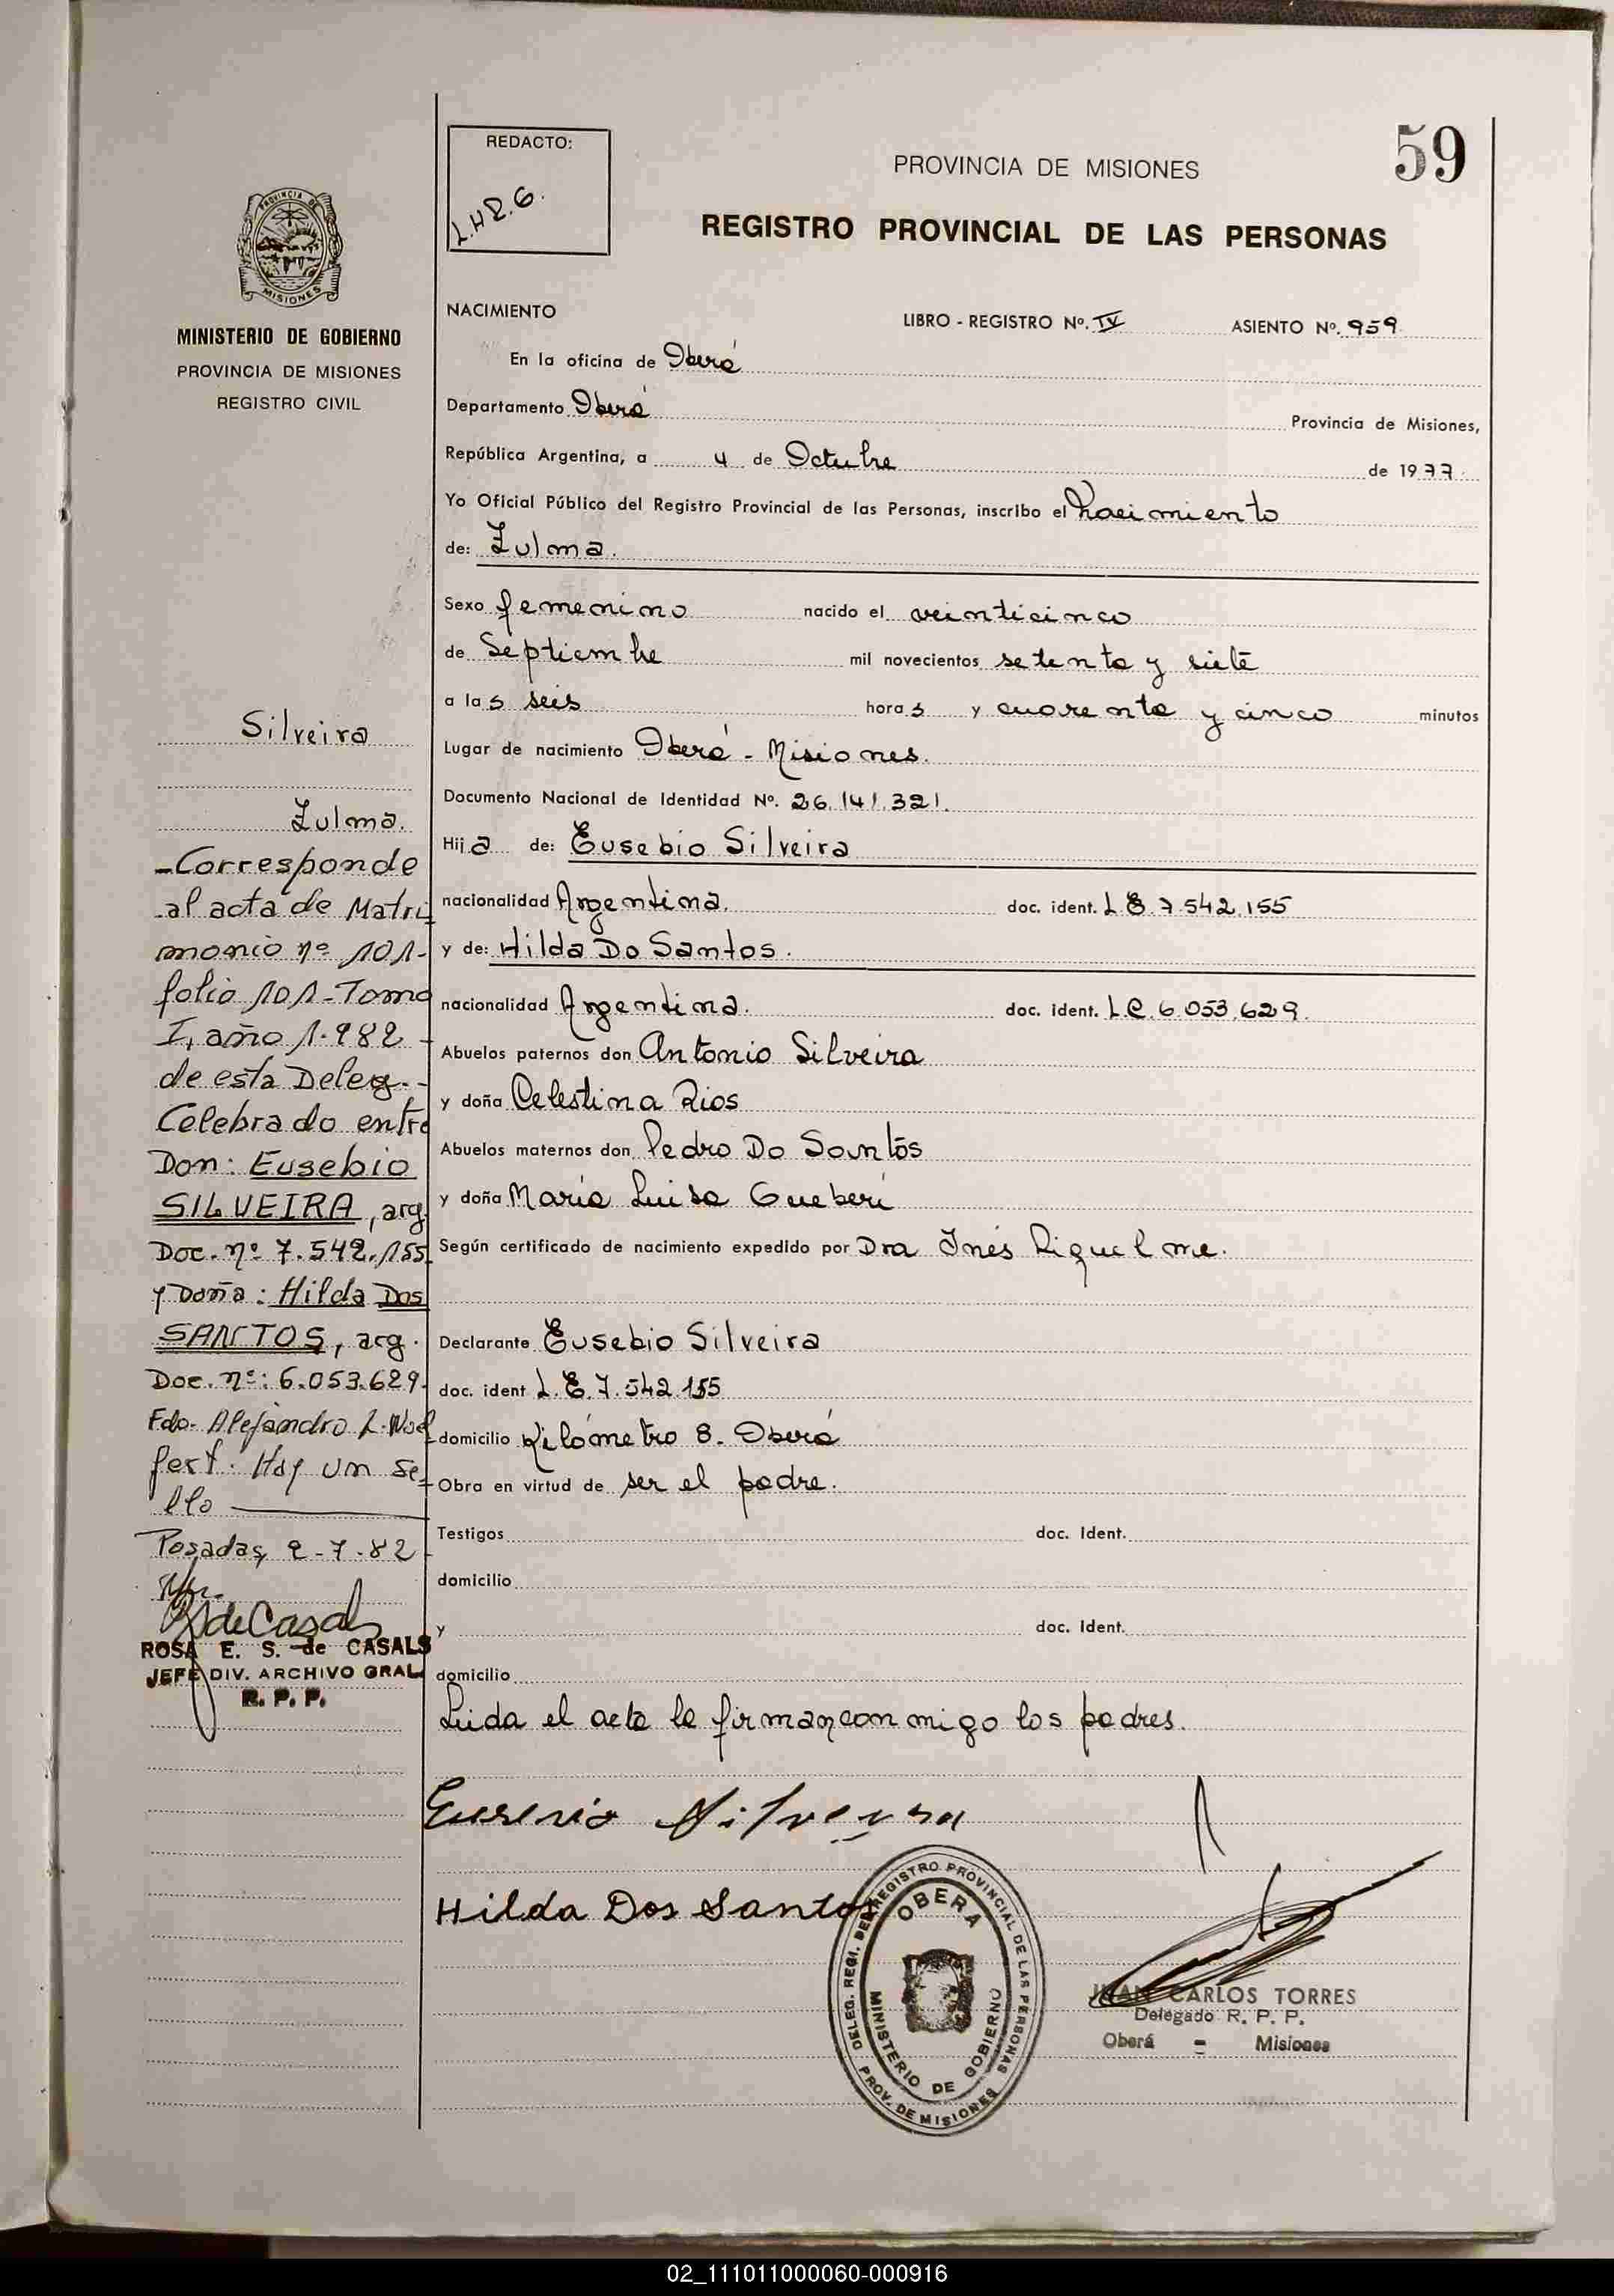 59
REDACTO:
L.H.R.G.
PROVINCIA DE MISIONES
REGISTRO PROVINCIAL DE LAS PERSONAS
PROVINCIA DE
MISIONES
MINISTERIO DE GOBIERNO
PROVINCIA DE MISIONES
REGISTRO CIVIL
NACIMIENTO LIBRO - REGISTRO Nº. IV ASIENTO Nº. 959
En la oficina de Oberá
Departamento Oberá Provincia de Misiones,
República Argentina, a 4 de Octubre de 1977
Yo Oficial Público del Registro Provincial de las Personas, inscribo el Nacimiento
de: Zulma.
Sexo femenino nacido el veinticinco
de Septiembre mil novecientos setenta y siete
a las seis horas y cuarenta y cinco minutos
Lugar de nacimiento Oberá - Misiones.
Documento Nacional de Identidad Nº. 26.141.321.
Hija de: Eusebio Silveira
nacionalidad Argentina. doc. ident. L E 7.542.155
y de: Hilda Do Santos.
nacionalidad Argentina. doc. ident. L.C. 6.053.629.
Abuelos paternos don Antonio Silveira
y doña Celestina Rios
Abuelos maternos don Pedro Do Santos
y doña María Luisa Gueberí
Según certificado de nacimiento expedido por Dra Inés Riquelme.
Declarante Eusebio Silveira
doc. ident L.E. 7.542.155
domicilio Kilómetro 8. Oberá
Obra en virtud de ser el padre.
Testigos doc. Ident.
domicilio
y doc. Ident.
domicilio
Leida el acta la firman con migo los padres.
Silveira
Zulma.
-Corresponde
al acta de Matri
monio nº 101-
folio 101-Tomo
I, año 1.982 -
de esta Deleg.-
Celebrado entre
Don: Eusebio
SILVEIRA, arg.
Doc. nº 7.542.155
y Doña: Hilda Dos
SANTOS, arg.
Doc. nº: 6.053.629.
Fdo. Alejandro L.
Hay un se-
llo
Posadas, 2-7-82
ROSA E. S. de CASALS
JEFE DIV. ARCHIVO GRAL.
R. P. P.
Eusebio Silveira
Hilda Dos Santos
DELEG. REGI. DEL REGISTRO PROVINCIAL DE LAS PERSONAS
OBERA
MINISTERIO DE GOBIERNO
PROV. DE MISIONES
JUAN CARLOS TORRES
Delegado R. P. P.
Oberá - Misiones
02_111011000060-000916